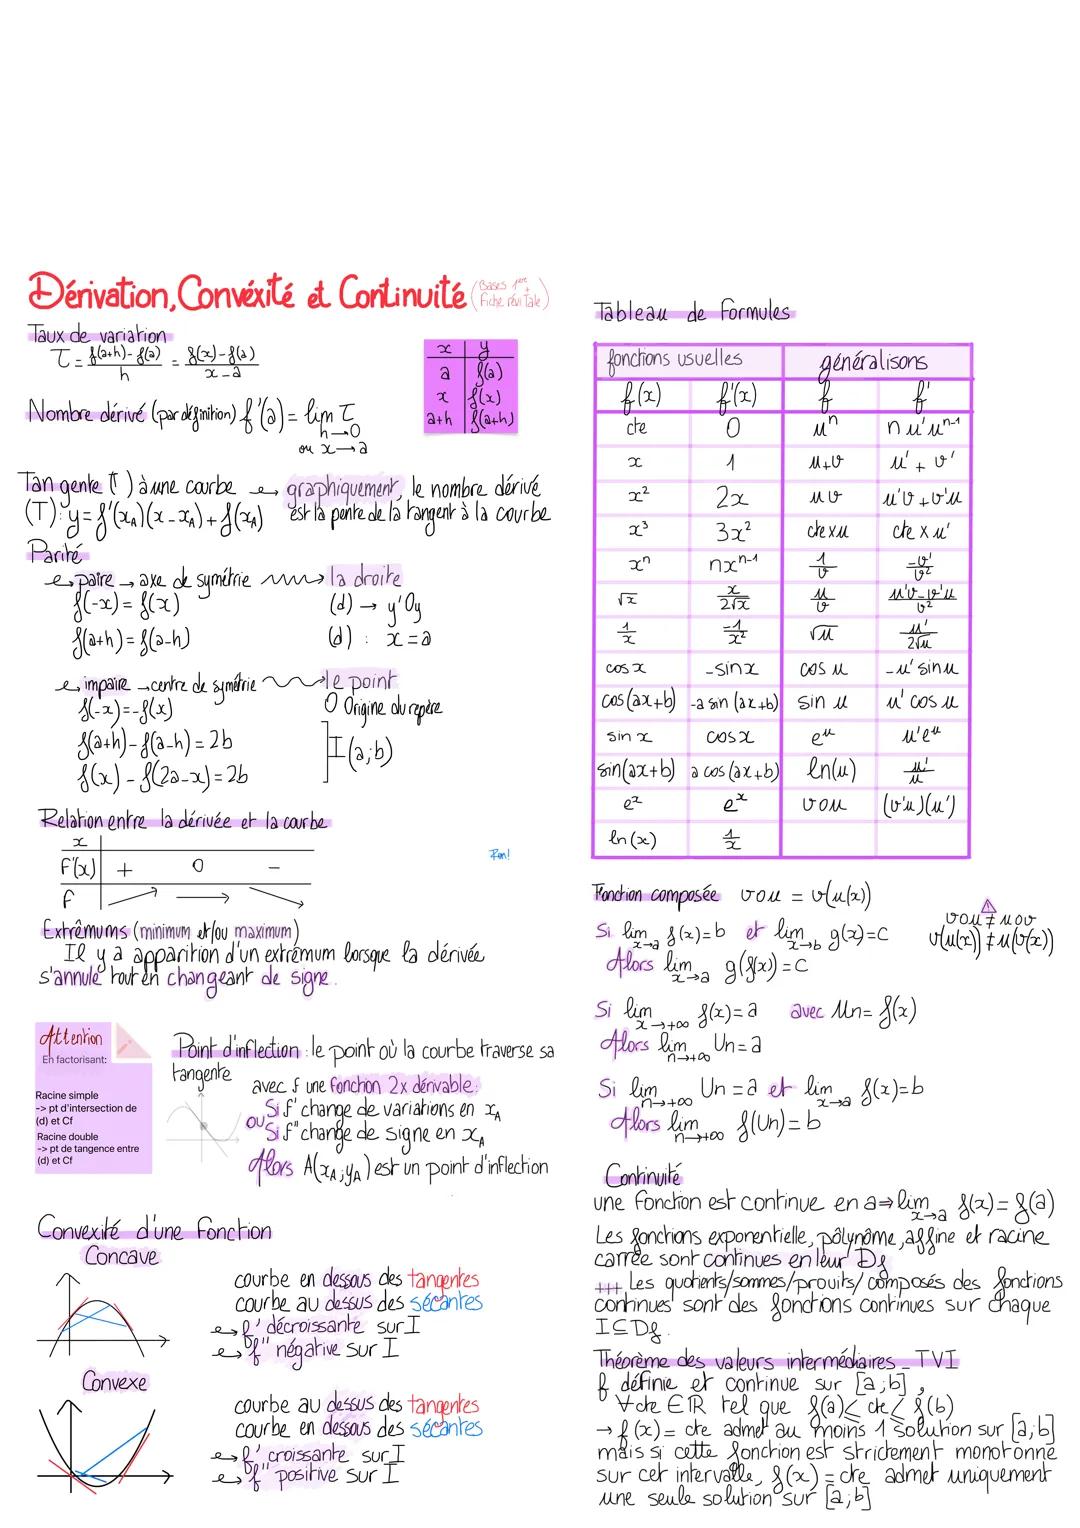 Dérivation, Convéxité et Continuité (Bases 1ère + Fiche révi Tale)
Taux de variation
τ = f(a+h)-f(a)/h = f(x)-f(a)/x-a
x | y
a | f(a)
x | f(x)
a+h | f(a+h)
Nombre dérivé (par définition) f'(a) = lim τ
h→0
ou x→a
Tangente (T) à une courbe → graphiquement, le nombre dérivé
est la pente de la tangent à la courbe
(T): y = f'(xA)(x-xA)+f(xA)
Parité
paire → axe de symétrie → la droite
f(-x) = f(x) (d) → y'Oy
f(a+h) = f(a-h) (d) : x=a
impaire → centre de symétrie → le point
f(-x) = -f(x) O Origine du repère
f(a+h)-f(a-h) = 2b
f(x) - f(2a-x) = 2b
I(a;b)
Relation entre la dérivée et la courbe
x
f'(x) + 0 -
f
Rem!
Extrêmums (minimum et/ou maximum)
Il y a apparition d'un extrémum lorsque la dérivée
s'annule tout en changeant de signe.
Attention
En factorisant:
Racine simple
-> pt d'intersection de
(d) et Cf
Racine double
-> pt de tangence entre
(d) et Cf
Point d'inflection : le point où la courbe traverse sa
tangente
avec f une fonction 2x dérivable:
Si f' change de variations en xA
ou Si f" change de signe en xA
Alors A(xA;yA) est un point d'inflection
Convexité d'une fonction
Concave
courbe en dessous des tangentes
courbe au dessus des sécantes
f' décroissante sur I
f" négative sur I
Convexe
courbe au dessus des tangentes
courbe en dessous des sécantes
f' croissante sur I
f" positive sur I
Tableau de formules
fonctions usuelles | généralisons
f(x) | f'(x) | f | f'
cte | 0 | uⁿ | n u'uⁿ⁻¹
x | 1 | u+v | u' + v'
x² | 2x | uv | u'v+v'u
x³ | 3x² | cte x u | cte x u'
xⁿ | nxⁿ⁻¹ | 1/v | -v'/v²
√x | x/2√x | u/v | u'v-v'u/v²
1/x | -1/x² | √u | u'/2√u
cos x | -sin x | cos u | -u' sin u
cos(ax+b) | -a sin(ax+b) | sin u | u' cos u
sin x | cos x | eᵘ | u'eᵘ
sin(ax+b) | a cos(ax+b) | ln(u) | u'/u
eˣ | eˣ | vou | (v'u)(u')
ln(x) | 1/x
Fonction composée vou = v(u(x))
⚠ vou ≠ uov
v(u(x)) ≠ u(v(x))
Si lim x→a f(x)=b et lim x→b g(x)=c
Alors lim x→a g(f(x)) = c
Si lim x→+∞ f(x)=a avec Un= f(x)
Alors lim n→+∞ Un=a
Si lim n→+∞ Un = a et lim x→a f(x)=b
Alors lim n→+∞ f(Un) = b
Continuité
une fonction est continue en a ⇒ lim x→a f(x) = f(a)
Les fonctions exponentielle, pôlynôme, affine et racine
carrée sont continues en leur Df
+++ Les quotients/sommes/prouits/composés des fonctions
continues sont des fonctions continues sur chaque
I⊆Df.
Théorème des valeurs intermédiaires - TVI
f définie et continue sur [a;b],
∀cte ∈ℝ tel que f(a)≤ cte ≤ f(b)
→ f(x) = cte admet au moins 1 solution sur [a;b]
mais si cette fonction est strictement monotonne
sur cet intervalle, f(x) = cte admet uniquement
une seule solution sur [a;b]